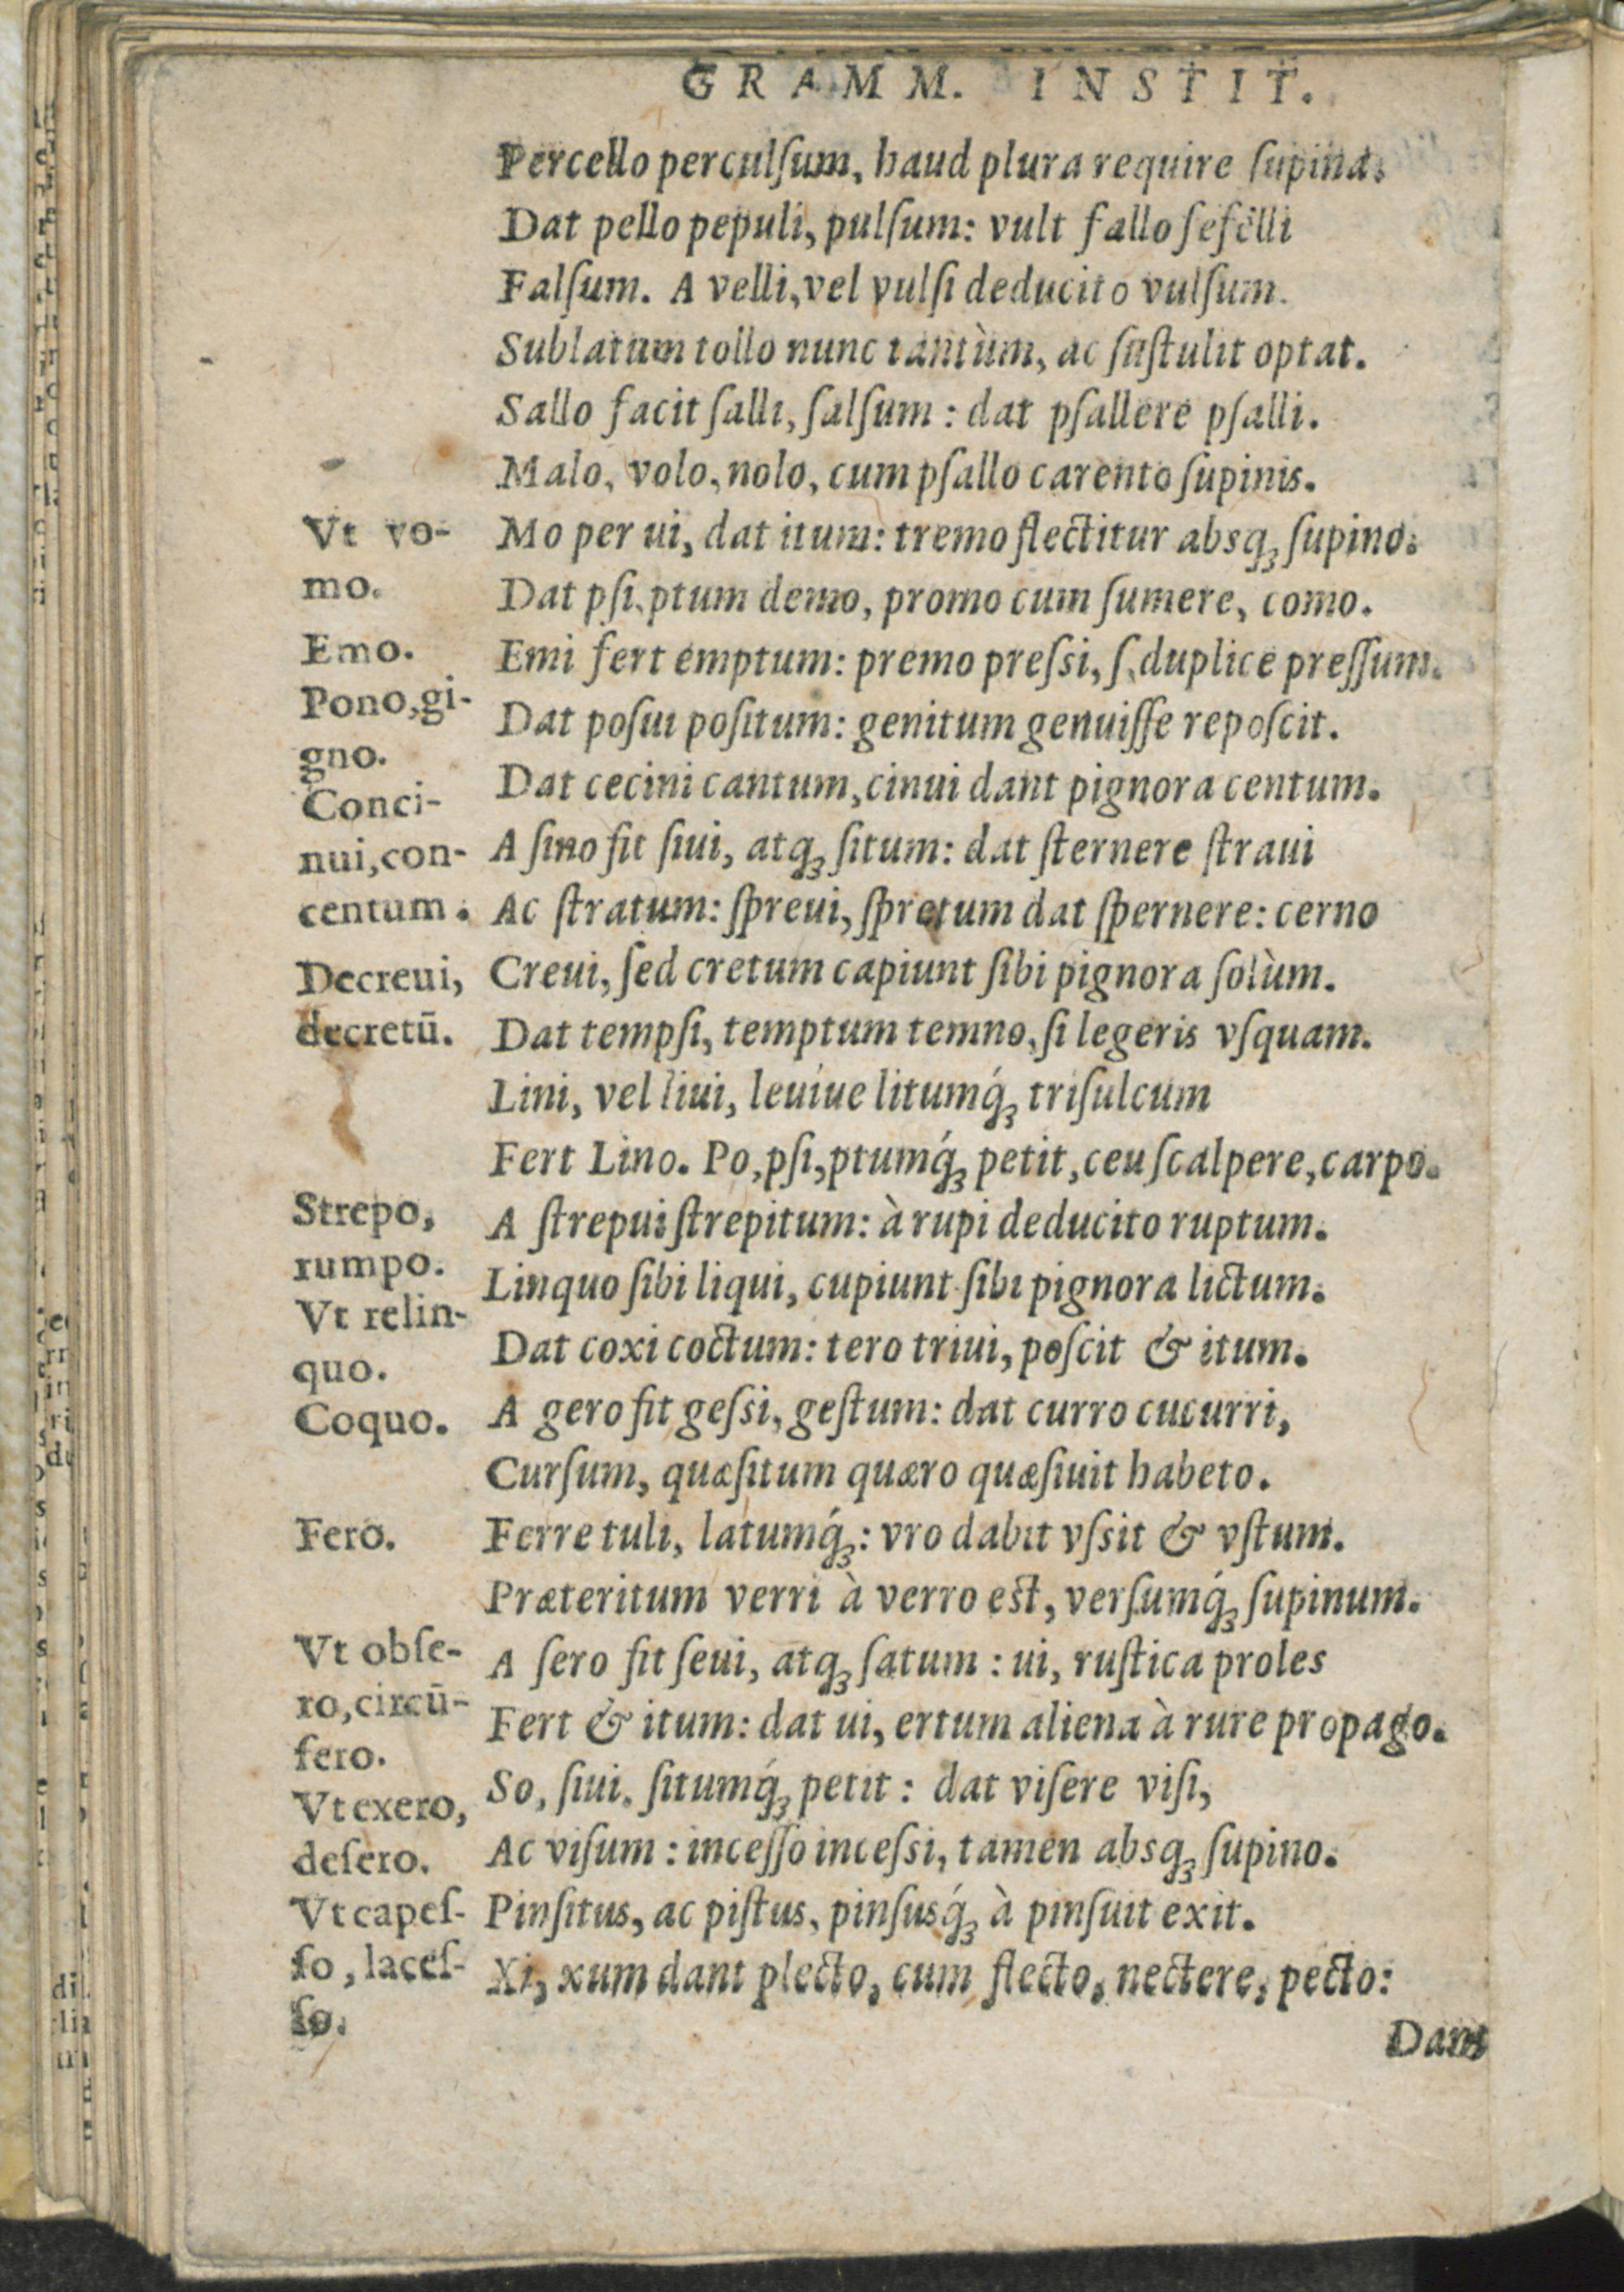 GRAMM. INSTIT.
Percello perculſum, haud plura require ſupina.
Dat pello pepuli, pulſum: vult fallo fefelli
Falſum. A velli, vel vulſi deducito vulſum.
Sublatum tollo nunc tantùm, ac ſuſtulit optat.
Sallo facit ſalli, ſalſum: dat pſallere pſalli.
Malo, volo, nolo, cum pſallo carento ſupinis.
Vt vo-
mo.
Mo per ui, dat itum: tremo flectitur absqꝫ ſupino.
Dat pſi, ptum demo, promo cum ſumere, como.
Emo.
Emi fert emptum: premo preſsi, ſ, duplice preſſum.
Pono, gi-
gno.
Dat poſui poſitum: genitum genuiſſe repoſcit.
Conci-
nui, con-
centum.
Dat cecini cantum, cinui dant pignora centum.
A ſino fit ſiui, atqꝫ ſitum: dat ſternere ſtraui
Ac ſtratum: ſpreui, ſpretum dat ſpernere: cerno
Decreui,
decretū.
Creui, ſed cretum capiunt ſibi pignora ſolùm.
Dat tempſi, temptum temno, ſi legeris vſquam.
Lini, vel liui, leuiue litumq́ꝫ triſulcum
Fert Lino. Po, pſi, ptumq́ꝫ petit, ceu ſcalpere, carpo.
Strepo,
rumpo.
A ſtrepui ſtrepitum: à rupi deducito ruptum.
Vt relin-
quo.
Linquo ſibi liqui, cupiunt ſibi pignora lictum.
Coquo.
Dat coxi coctum: tero triui, poſcit & itum.
A gero fit geſsi, geſtum: dat curro cucurri,
Curſum, quæſitum quæro quæſiuit habeto.
Fero.
Ferre tuli, latumq́ꝫ: vro dabit vſsit & vſtum.
Præteritum verri à verro eſt, verſumq́ꝫ ſupinum.
Vt obſe-
ro, circū-
fero.
A ſero fit ſeui, atqꝫ ſatum: ui, ruſtica proles
Fert & itum: dat ui, ertum aliena à rure propago.
Vt exero,
deſero.
So, ſiui, ſitumq́ꝫ petit: dat viſere viſi,
Ac viſum: inceſſo inceſsi, tamen absqꝫ ſupino.
Vt capeſ-
ſo, laceſ-
ſo.
Pinſitus, ac piſtus, pinſusq́ꝫ à pinſuit exit.
Xi, xum dant plecto, cum flecto, nectere, pecto:
Dant